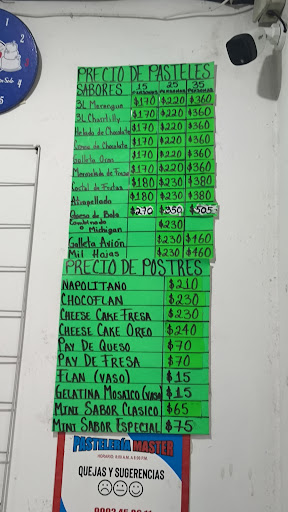 PRECIO DE PASTELES
SABORES 15 Personas 25 Personas 35 Personas
3L Merengue $170 $220 $360
3L Chantilly $170 $220 $360
Helado de Chocolate $170 $220 $360
Crema de Chocolate $170 $220 $360
Galleta Oreo $170 $220 $360
Mermelada de Fresa $170 $220 $360
Coctel de Frutas $180 $230 $380
Atropellado $180 $230 $380
Queso de Bola $270 $350 $505
Combinado
o Michigan $230
Galleta Avión $230 $460
Mil Hojas $230 $460
PRECIO DE POSTRES
NAPOLITANO $210
CHOCOFLAN $230
CHEESE CAKE FRESA $230
CHEESE CAKE OREO $240
PAY DE QUESO $70
PAY DE FRESA $70
FLAN (VASO) $15
GELATINA MOSAICO (VASO) $15
MINI SABOR CLASICO $65
MINI SABOR ESPECIAL $75
PASTELERÍA MASTER
QUEJAS Y SUGERENCIAS